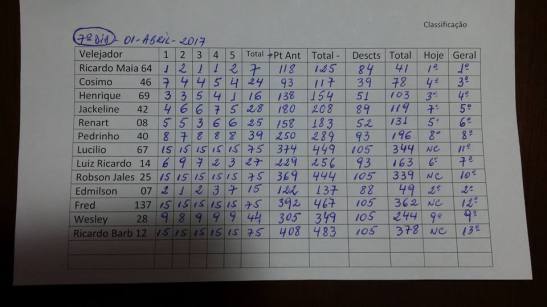 Classificação
7º Dia - 01-ABRIL-2017
Velejador 1 2 3 4 5 Total +Pt Ant Total - Descts Total Hoje Geral
Ricardo Maia 64 1 2 1 1 2 7 118 125 84 41 1º 1º
Cosimo 46 7 4 4 5 4 24 93 117 39 78 4º 3º
Henrique 69 3 3 5 4 1 16 138 154 51 103 3º 4º
Jackeline 42 4 6 6 7 5 28 180 208 89 119 7º 5º
Renart 08 5 5 3 6 6 25 158 183 52 131 5º 6º
Pedrinho 40 8 7 8 8 8 39 250 289 93 196 8º 8º
Lucilio 67 15 15 15 15 15 75 374 449 105 344 NC 11º
Luiz Ricardo 14 6 9 7 2 3 27 229 256 93 163 6º 7º
Robson Jales 25 15 15 15 15 15 75 369 444 105 339 NC 10º
Edmilson 07 2 1 2 3 7 15 122 137 88 49 2º 2º
Fred 137 15 15 15 15 15 75 392 467 105 362 NC 12º
Wesley 28 9 8 9 9 9 44 305 349 105 244 9º 9º
Ricardo Barb 12 15 15 15 15 15 75 408 483 105 378 NC 13º